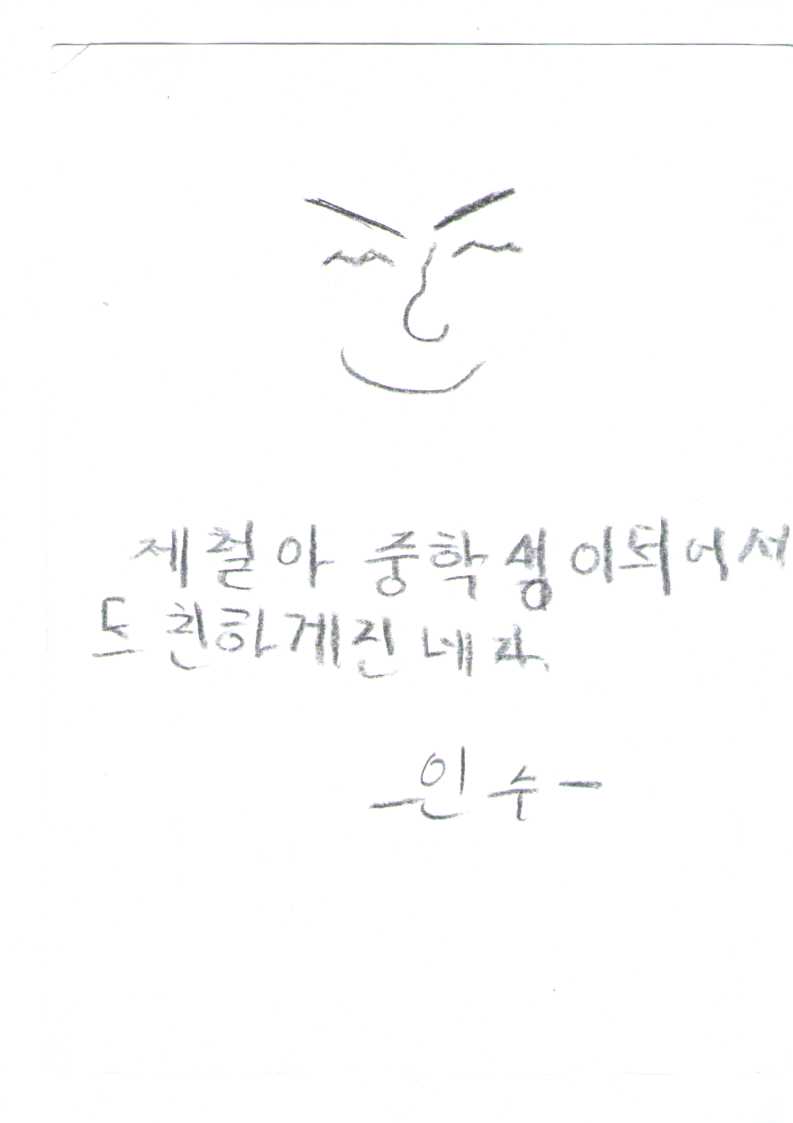 제철아 중학생이되어서
도 친하게진네자
-인수-